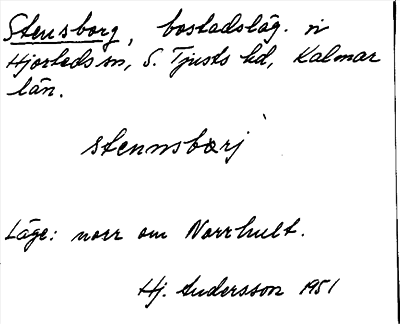 Stensborg, bostadsläg. i
Hjorteds sn, S. Tjusts hd, Kalmar
län.
stennsbærj
Läge: norr om Norrhult.
Hj. Andersson 1951